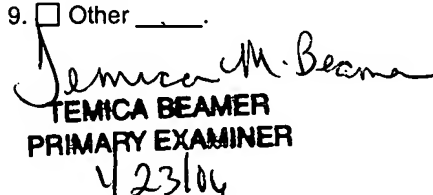 9. ☐ Other ____.
Temica M. Beamer
TEMICA BEAMER
PRIMARY EXAMINER
4/23/06